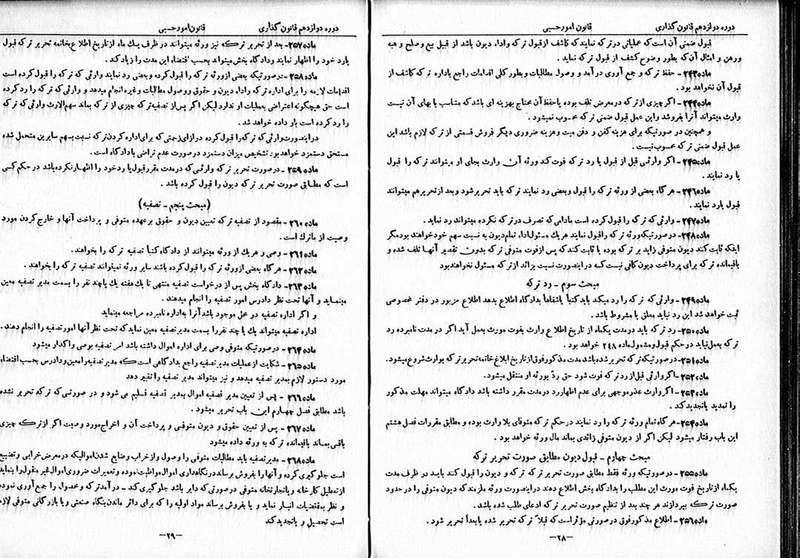 دوره دوازدهم قانون گذاری قانون امور حسبی
قبول ضمنی آن است که عملیاتی در ترکه نمایند که کاشف از قبول ترکه و اداء دیون باشد از قبیل بیع و صلح و هبه
ورهن و امثال آن که بطور وضوح کاشف از قبول ترکه نماید.
ماده ۲۴۳- حفظ ترکه و جمع آوری درآمد و وصول مطالبات و بطور کلی اقدامات راجع باداره ترکه کاشف از
قبول آن نخواهد بود.
ماده ۲۴۴- اگر چیزی از ترکه در معرض تلف بوده یا حفظ آن محتاج بهزینه ای باشد که متناسب با بهای آن نیست
وارث میتواند آنرا بفروشد و این عمل قبول ضمنی ترکه محسوب نمیشود.
و همچنین در صورتیکه برای هزینه کفن و دفن میت و هزینه ضروری دیگر فروش قسمتی از ترکه لازم باشد این
عمل قبول ضمنی ترکه محسوب نیست.
ماده ۲۴۵- اگر وارثی قبل از قبول یا رد ترکه فوت کند ورثه آن وارث بجای او میتواند ترکه را قبول
یا رد نمایند.
ماده ۲۴۶- هرگاه بعضی از ورثه ترکه را قبول و بعضی رد نمایند ترکه باید تحریر شود و بعد از تحریر هم میتواند
قبول یا رد نمایند.
ماده ۲۴۷- وارثی که ترکه را قبول کرده است مادامی که تصرف در ترکه نکرده میتواند رد نماید.
ماده ۲۴۸- در صورتیکه ورثه ترکه را قبول نمایند هریک مسئول اداء تمام دیون به نسبت سهم خود خواهند بود مگر
اینکه ثابت کنند دیون متوفی زائد بر ترکه بوده یا ثابت کنند که پس از فوت متوفی ترکه بدون تقصیر آنها تلف شده و
باقیمانده ترکه برای پرداخت دیون کافی نیست که در اینصورت نسبت بزائد از ترکه مسئول نخواهند بود
مبحث سوم - رد ترکه
ماده ۲۴۹- وارثی که ترکه را رد میکند باید کتباً یا شفاهاً بدادگاه اطلاع بدهد اطلاع مزبور در دفتر مخصوصی
ثبت خواهد شد این رد نباید معلق یا مشروط باشد.
ماده ۲۵۰- رد ترکه باید در مدت یکماه از تاریخ اطلاع وارث بفوت مورث بعمل آید اگر در مدت نامبرده رد
ترکه بعمل نیاید در حکم قبول و مشمول ماده ۲۴۸ خواهد بود.
ماده ۲۵۱- در صورتیکه ترکه تحریر شده باشد مدت مذکور فوق از تاریخ ابلاغ خاتمه تحریر ترکه بوارث شروع میشود.
ماده ۲۵۲- اگر وارثی قبل از رد ترکه فوت شود حق رد بورثه او منتقل میشود.
ماده ۲۵۳- اگر وارث عذر موجهی برای عدم اظهار رد در مدت مقرر داشته باشد دادگاه میتواند مهلت مذکور
را تمدید یا تجدید کند.
ماده ۲۵۴- هرگاه تمام ورثه ترکه را رد نمایند در حکم ترکه متوفای بلا وارث بوده و مطابق مقررات فصل هشتم
این باب رفتار میشود لیکن اگر از دیون متوفی زائدی بماند مال ورثه خواهد بود.
مبحث چهارم - قبول دیون مطابق صورت تحریر ترکه
ماده ۲۵۵- در صورتیکه ورثه فقط مطابق صورت تحریر ترکه ترکه و دیون را قبول کنند باید در ظرف مدت
یکماه از تاریخ فوت مورث این مطلب را بدادگاه بخش اطلاع دهند در اینصورت ورثه ملزمند که دیون متوفی را در حدود
صورت ترکه بپردازند هر چند بعد از تنظیم صورت تحریر ترکه ادعای طلب شده باشد.
ماده ۲۵۶- اطلاع مذکور فوق در صورتی مؤثر است که قبلاً ترکه تحریر شده یا بعداً تحریر شود.
-۲۸-
دوره دوازدهم قانون گذاری قانون امور حسبی
ماده ۲۵۷- بعد از تحریر ترکه نیز ورثه میتواند در ظرف یک ماه از تاریخ اطلاع بخاتمه تحریر ترکه قبول
یا رد خود را اظهار نماید و دادگاه بخش میتواند بحسب اقتضاء این مدت را زیاد کند.
ماده ۲۵۸- در صورتیکه بعضی از ورثه ترکه را قبول کرده و بعضی رد نمایند وارثی که ترکه را قبول کرده است
اقدامات لازمه را برای اداره ترکه و اداء دیون و حقوق و وصول مطالبات و غیره انجام میدهد و وارثی که ترکه را رد کرده
است حق هیچگونه اعتراضی بعملیات او ندارد لیکن اگر پس از تصفیه ترکه چیزی از ترکه بماند سهم الارث وارثی که ترکه
را رد کرده است باو داده خواهد شد.
در اینصورت وارثی که ترکه را قبول کرده در ازای زحمتی که برای اداره کردن ترکه نسبت بسهم سایرین متحمل شده
مستحق دستمزد خواهد بود تشخیص میزان دستمزد در صورت عدم تراضی با دادگاه است.
ماده ۲۵۹- در صورت تحریر ترکه وارثی که در مدت مقرر قبول یا رد خود را اظهار نکرده باشد در حکم کسی
است که مطابق صورت تحریر ترکه دیون را قبول کرده باشد.
(مبحث پنجم - تصفیه)
ماده ۲۶۰- مقصود از تصفیه ترکه تعیین دیون و حقوق برعهده متوفی و پرداخت آنها و خارج کردن مورد
وصیت از ماترک است.
ماده ۲۶۱- وصی و هریک از ورثه میتواند از دادگاه کتباً تصفیه ترکه را بخواهند.
ماده ۲۶۲- هرگاه بعضی از ورثه ترکه را قبول کرده باشند سایر ورثه نمیتوانند تصفیه ترکه را بخواهند.
ماده ۲۶۳- دادگاه بخش پس از درخواست تصفیه منتهی تا یک هفته یک یا چند نفر را بسمت مدیر تصفیه معین
مینماید و آنها تحت نظر دادرس امور تصفیه را انجام میدهند.
و اگر اداره تصفیه در محل موجود باشد آنرا باداره نامبرده مراجعه مینماید
اداره تصفیه میتواند یک یا چند نفر را بسمت مدیر تصفیه معین نماید که تحت نظر آنها امور تصفیه را انجام دهند.
ماده ۲۶۴- در صورتیکه متوفی وصی برای اداره اموال داشته باشد امر تصفیه بوصی واگذار میشود
ماده ۲۶۵- شکایت از عملیات مدیر تصفیه راجع بدادگاهی است که مدیر تصفیه را معین و دادرس بحسب اقتضاء
مورد دستور لازم بمدیر تصفیه میدهد و نیز میتواند مدیر تصفیه را تغییر دهد
ماده ۲۶۶- پس از تعیین مدیر تصفیه اموال بمدیر تصفیه تسلیم می شود و در صورتی که ترکه تحریر نشده
باشد مطابق فصل چهارم این باب تحریر میشود.
ماده ۲۶۷- پس از تعیین حقوق و دیون متوفی و پرداخت آن و اخراج مورد وصیت اگر از ترکه چیزی
باقی بماند باقیمانده ترکه به ورثه داده میشود
ماده ۲۶۸- مدیر تصفیه باید مطالبات متوفی را وصول و از خراب و ضایع شدن اموالیکه در معرض خرابی و تضییع
است جلوگیری کرده و آنها را بفروش برساند در نگاهداری اموال مواظبت نموده و تعمیرات ضروری اموال غیر منقول را بنماید
از تعطیل کارخانه و یا تجارتخانه متوفی در صورتی که دایر باشد جلوگیری کند - درآمد ترکه و محصول را جمع آوری نموده
و نظر به مقتضیات انبار نماید و یا بفروش برساند مواد اولیه را که برای دائر ماندن بنگاه صنعتی و یا بازرگانی متوفی لازم
است تحصیل و یا تجدید کند
-۲۹-